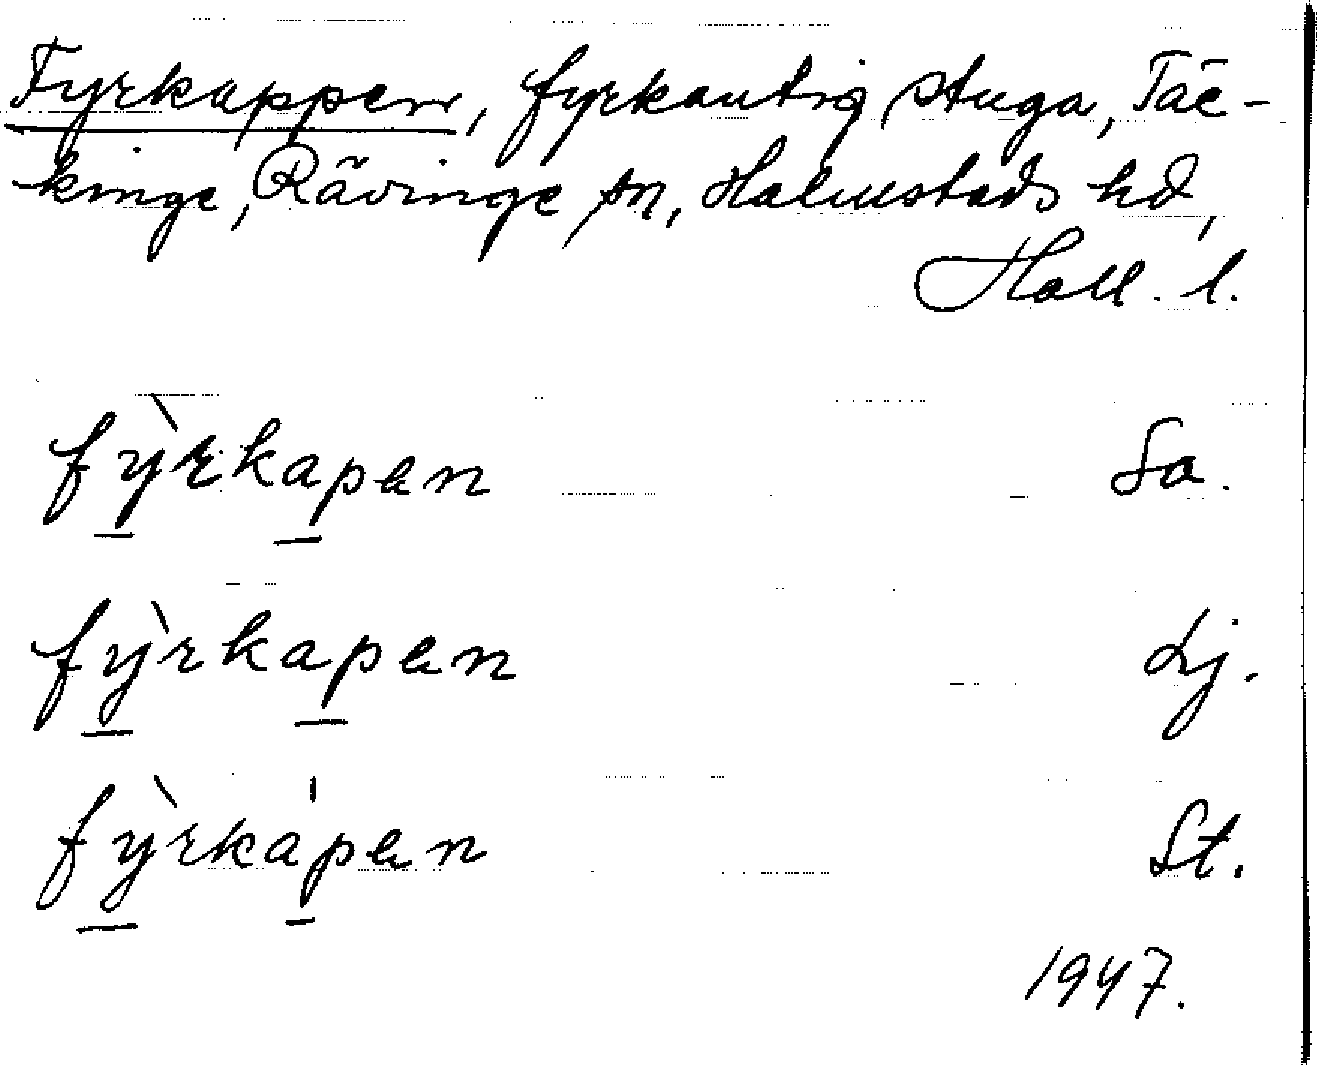 Fyrkappen, fyrkantig stuga, Täc-
kinge, Rävinge sn, Halmstads hd,
Hall. l.
fỳ̱rkap̱ɐn Sa.
fỳ̱rkap̱ɐn Lj.
fỳ̱rkáp̱ɐn St.
1947.